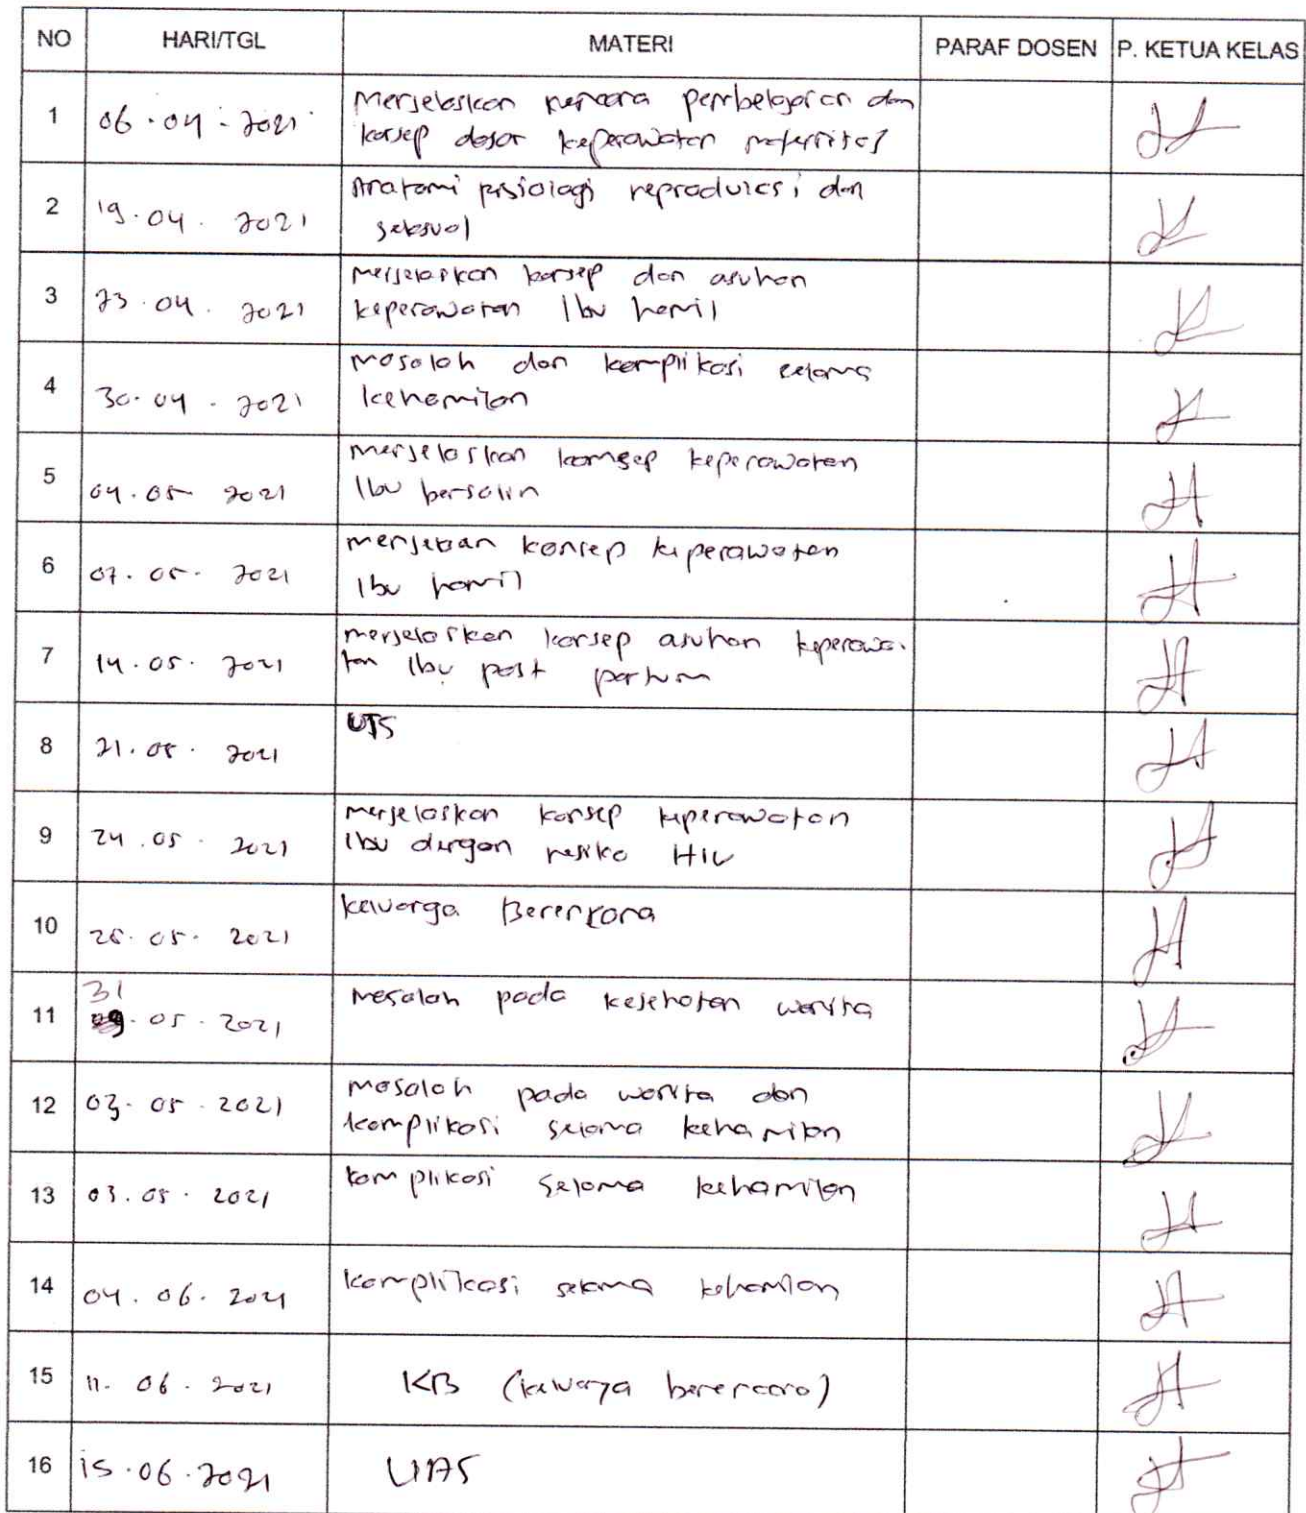 NO HARI/TGL MATERI PARAF DOSEN P. KETUA KELAS
1 06-04-2021 Menjelaskan rencana pembelajaran dan
konsep dasar keperawatan maternitas
2 19.04.2021 Anatomi pisiologi reproduksi dan
seksual
3 23.04.2021 menjelaskan konsep dan asuhan
keperawatan Ibu hamil
4 30.04.2021 masalah dan komplikasi selama
kehamilan
5 04.05 2021 menjelaskan komsep keperawatan
Ibu bersalin
6 07.05.2021 konsep keperawatan
Ibu hamil
7 14.05.2021 menjelaskan konsep asuhan keperawa.
tan Ibu post partum
8 21.05.2021 UTS
9 24.05.2021 menjelaskan konsep keperawatan
Ibu dengan resiko HIV
10 .05.2021 keluarga Berencana
31
11 .05.2021 masalah pada kesehatan wanita
12 03.05.2021 masalah pada wanita dan
komplikasi selama kehamilan
13 03.05.2021 komplikasi selama kehamilan
14 04.06.2021 komplikasi selama kehamilan
15 11.06.2021 KB (keluarga berencana)
16 15.06.2021 UAS